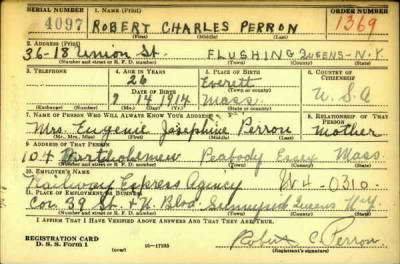 SERIAL NUMBER 1. NAME (Print) ORDER NUMBER
4097 ROBERT CHARLES PERRON 1369
(First) (Middle) (Last)
2. ADDRESS (Print)
36-18 Union St. FLUSHING QUEENS-N.Y.
(Number and street or R. F. D. number) (Town) (County) (State)
3. TELEPHONE 4. AGE IN YEARS 5. PLACE OF BIRTH 6. COUNTRY OF CITIZENSHIP
26 Everett
(Town or county)
DATE OF BIRTH
9 14 1914 Mass. U.S.A
(Exchange) (Number) (Mo.) (Day) (Yr.) (State or country)
7. NAME OF PERSON WHO WILL ALWAYS KNOW YOUR ADDRESS 8. RELATIONSHIP OF THAT PERSON
Mrs. Eugenie Josephine Perron Mother
(Mr., Mrs., Miss) (First) (Middle) (Last)
9. ADDRESS OF THAT PERSON
104 Bartholomew Peabody Essex Mass.
(Number and street or R. F. D. number) (Town) (County) (State)
10. EMPLOYER'S NAME
Railway Express Agency -0310.
11. PLACE OF EMPLOYMENT OR BUSINESS
Cor. 39 St. + N. Blvd. Sunnyside Queens N.Y.
(Number and street or R. F. D. number) (Town) (County) (State)
I AFFIRM THAT I HAVE VERIFIED ABOVE ANSWERS AND THAT THEY ARE TRUE.
REGISTRATION CARD
D. S. S. Form 1 (over) 16—17105 Robert C. Perron.
(Registrant's signature)